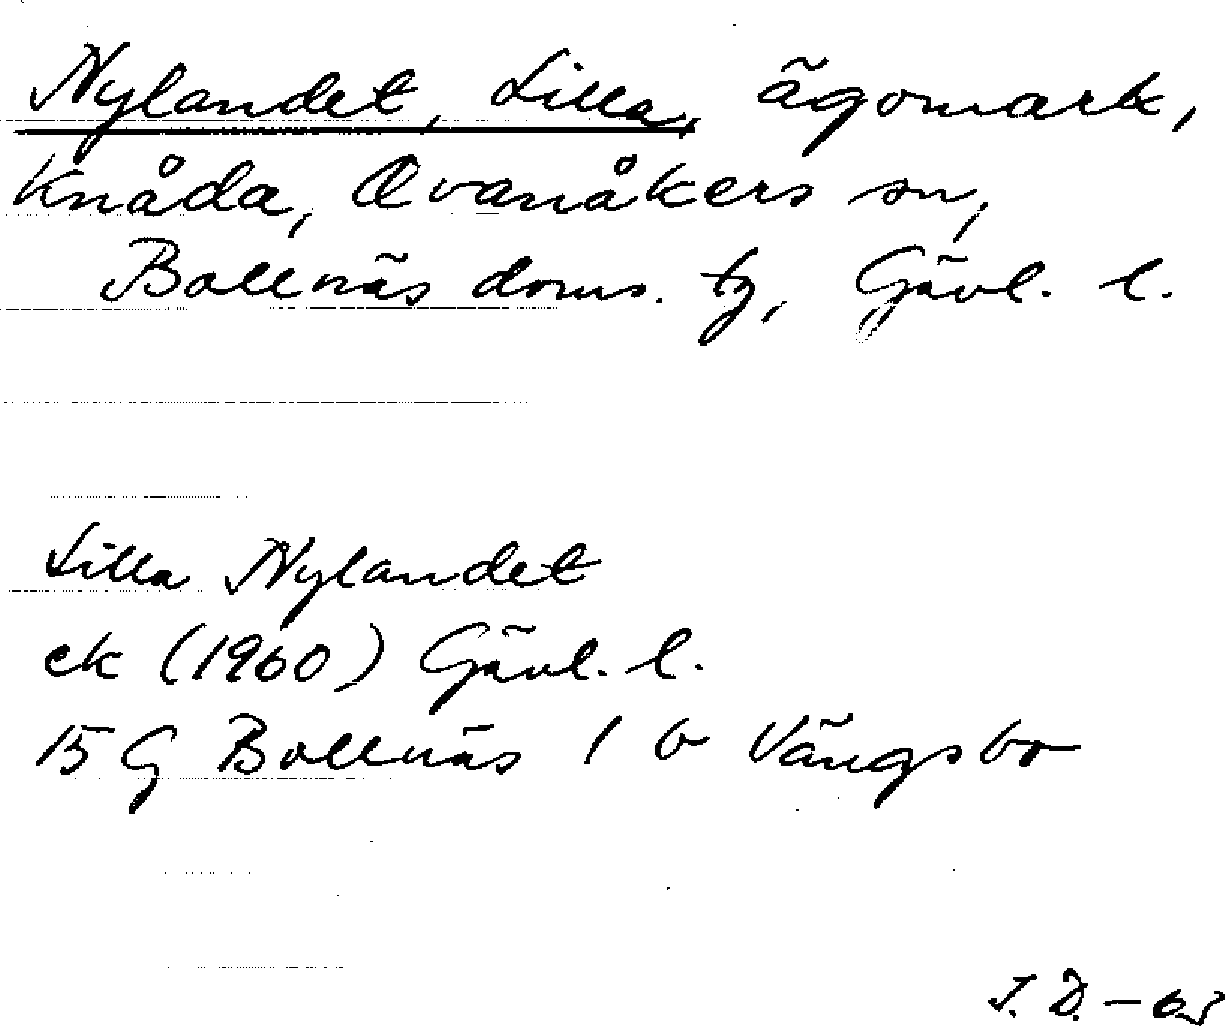 Nylandet, Lilla, ägomark,
Knåda, Ovanåkers sn,
Bollnäs doms. tg, Gävl. l.
Lilla Nylandet
ek (1960) Gävl. l.
15 G Bollnäs 1 b Vängsbo
J. D. - 63